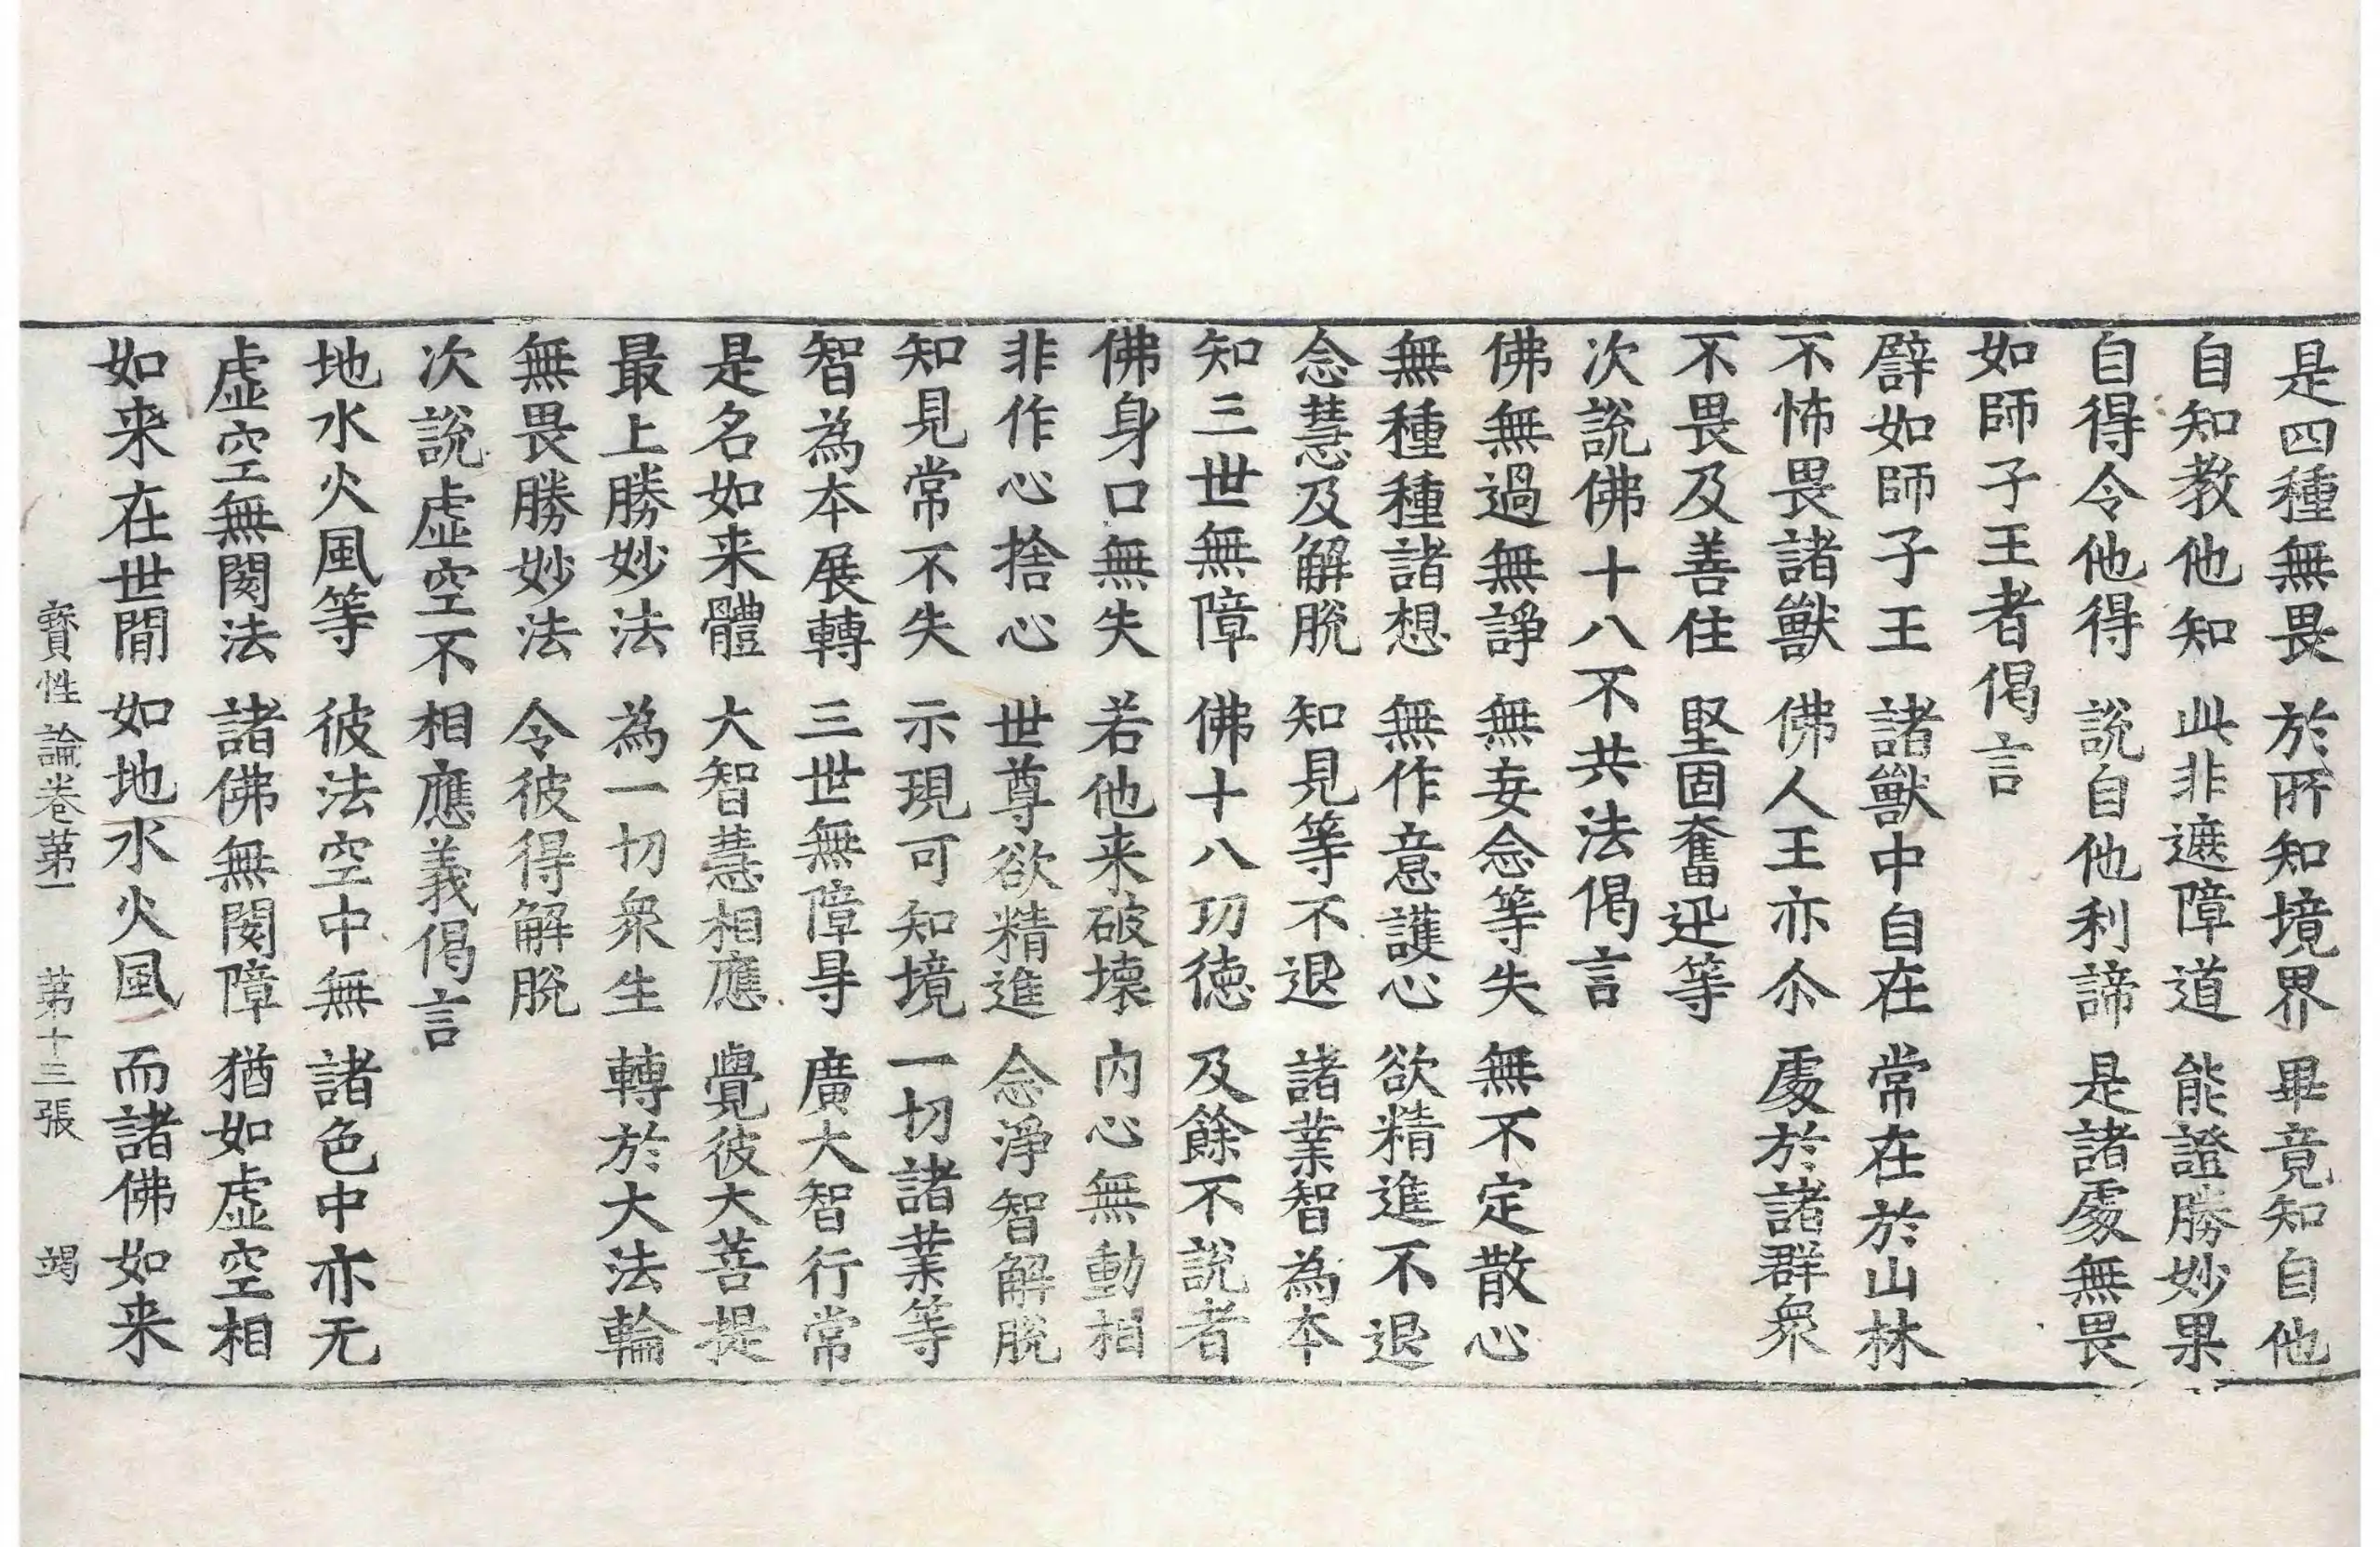 是四種無畏　於所知境界　畢竟知自他
自知教他知　此非遮障道　能證勝妙果
自得令他得　說自他利諦　是諸處無畏
如師子王者偈言
譬如師子王　諸獸中自在　常在於山林
不怖畏諸獸　佛人王亦尒　處於諸群衆
不畏及善住　堅固奮迅等
次說佛十八不共法偈言
佛無過無諍　無妄念等失　無不定散心
無種種諸想　無作意護心　欲精進不退
念慧及解脫　知見等不退　諸業智為本
知三世無障　佛十八功德　及餘不說者
佛身口無失　若他来破壞　內心無動相
非作心捨心　世尊欲精進　念淨智解脫
知見常不失　示現可知境　一切諸業等
智為本展轉　三世無障㝵　廣大智行常
是名如来體　大智慧相應　覺彼大菩提
最上勝妙法　為一切衆生　轉於大法輪
無畏勝妙法　令彼得解脫
次說虛空不相應義偈言
地水火風等　彼法空中無　諸色中亦无
虛空無閡法　諸佛無閡障　猶如虛空相
如来在世間　如地水火風　而諸佛如来
寶性論卷第一　第十三張　竭